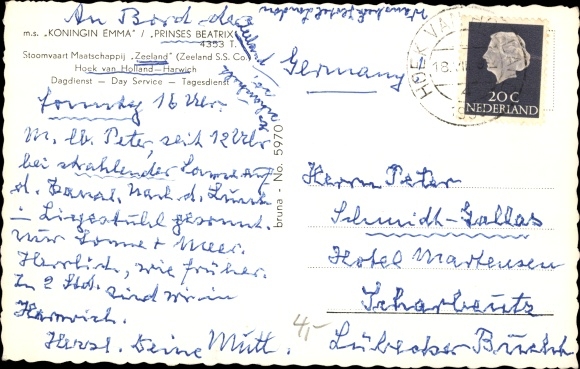 An Bord der
m.s. „KONINGIN EMMA" / „PRINSES BEATRIX
4353 T.
Stoomvaart Maatschappij „Zeeland" (Zeeland S.S. Co
Hoek van Holland—Harwich
Dagdienst — Day Service — Tagesdienst
Sonntag 16 Uhr
M. lb. Peter, seit 12 Uhr
bei strahlender Sonne auf
d. Kanal. Nach d. Lunch
im Liegestuhl gesonnt.
nur Sonne + Meer.
Herrlich, wie früher.
In 2 Std. sind wir in
Harwich.
Herzl. Deine Mutt.
Zeeland, so
bruna - No. 5970
Germany
HOEK VAN HOLLAND
18.VII
20 C
NEDERLAND
Herrn Peter
Schmidt-Gallas
Hotel Martensen
Scharbeutz
Lübecker Bucht
4,-